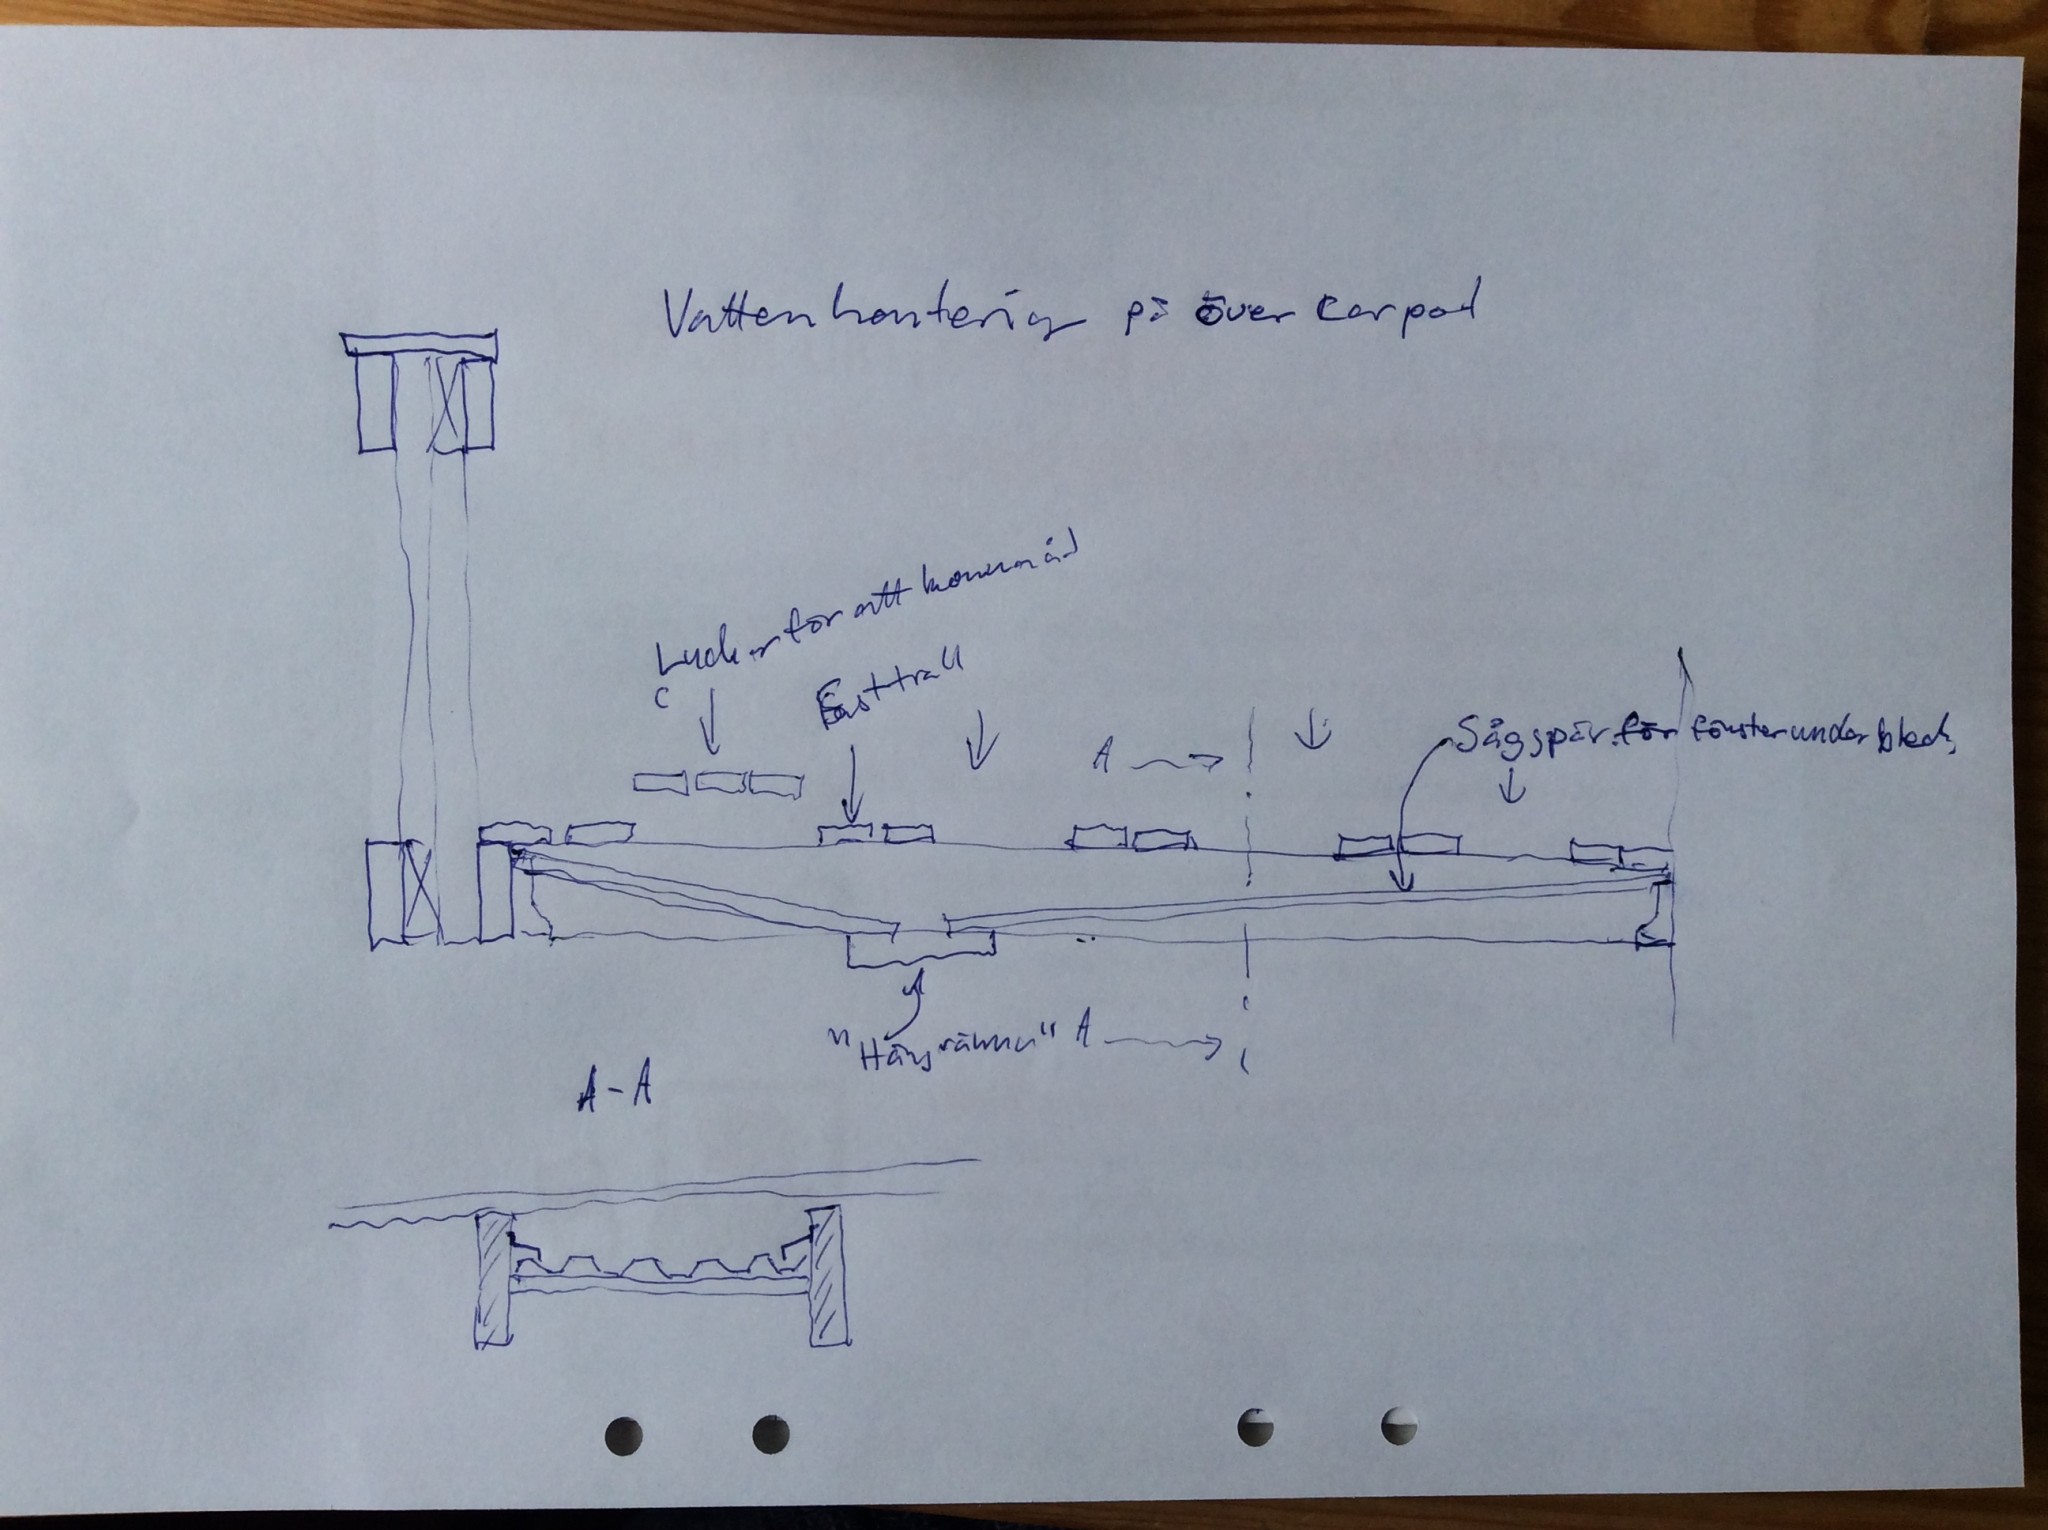 Vattenhantering på över Carpod
Luckor för att komma åt
Fast trall
A
Sågspår för fönsterunderbleck
"Hängränna"
A
A-A